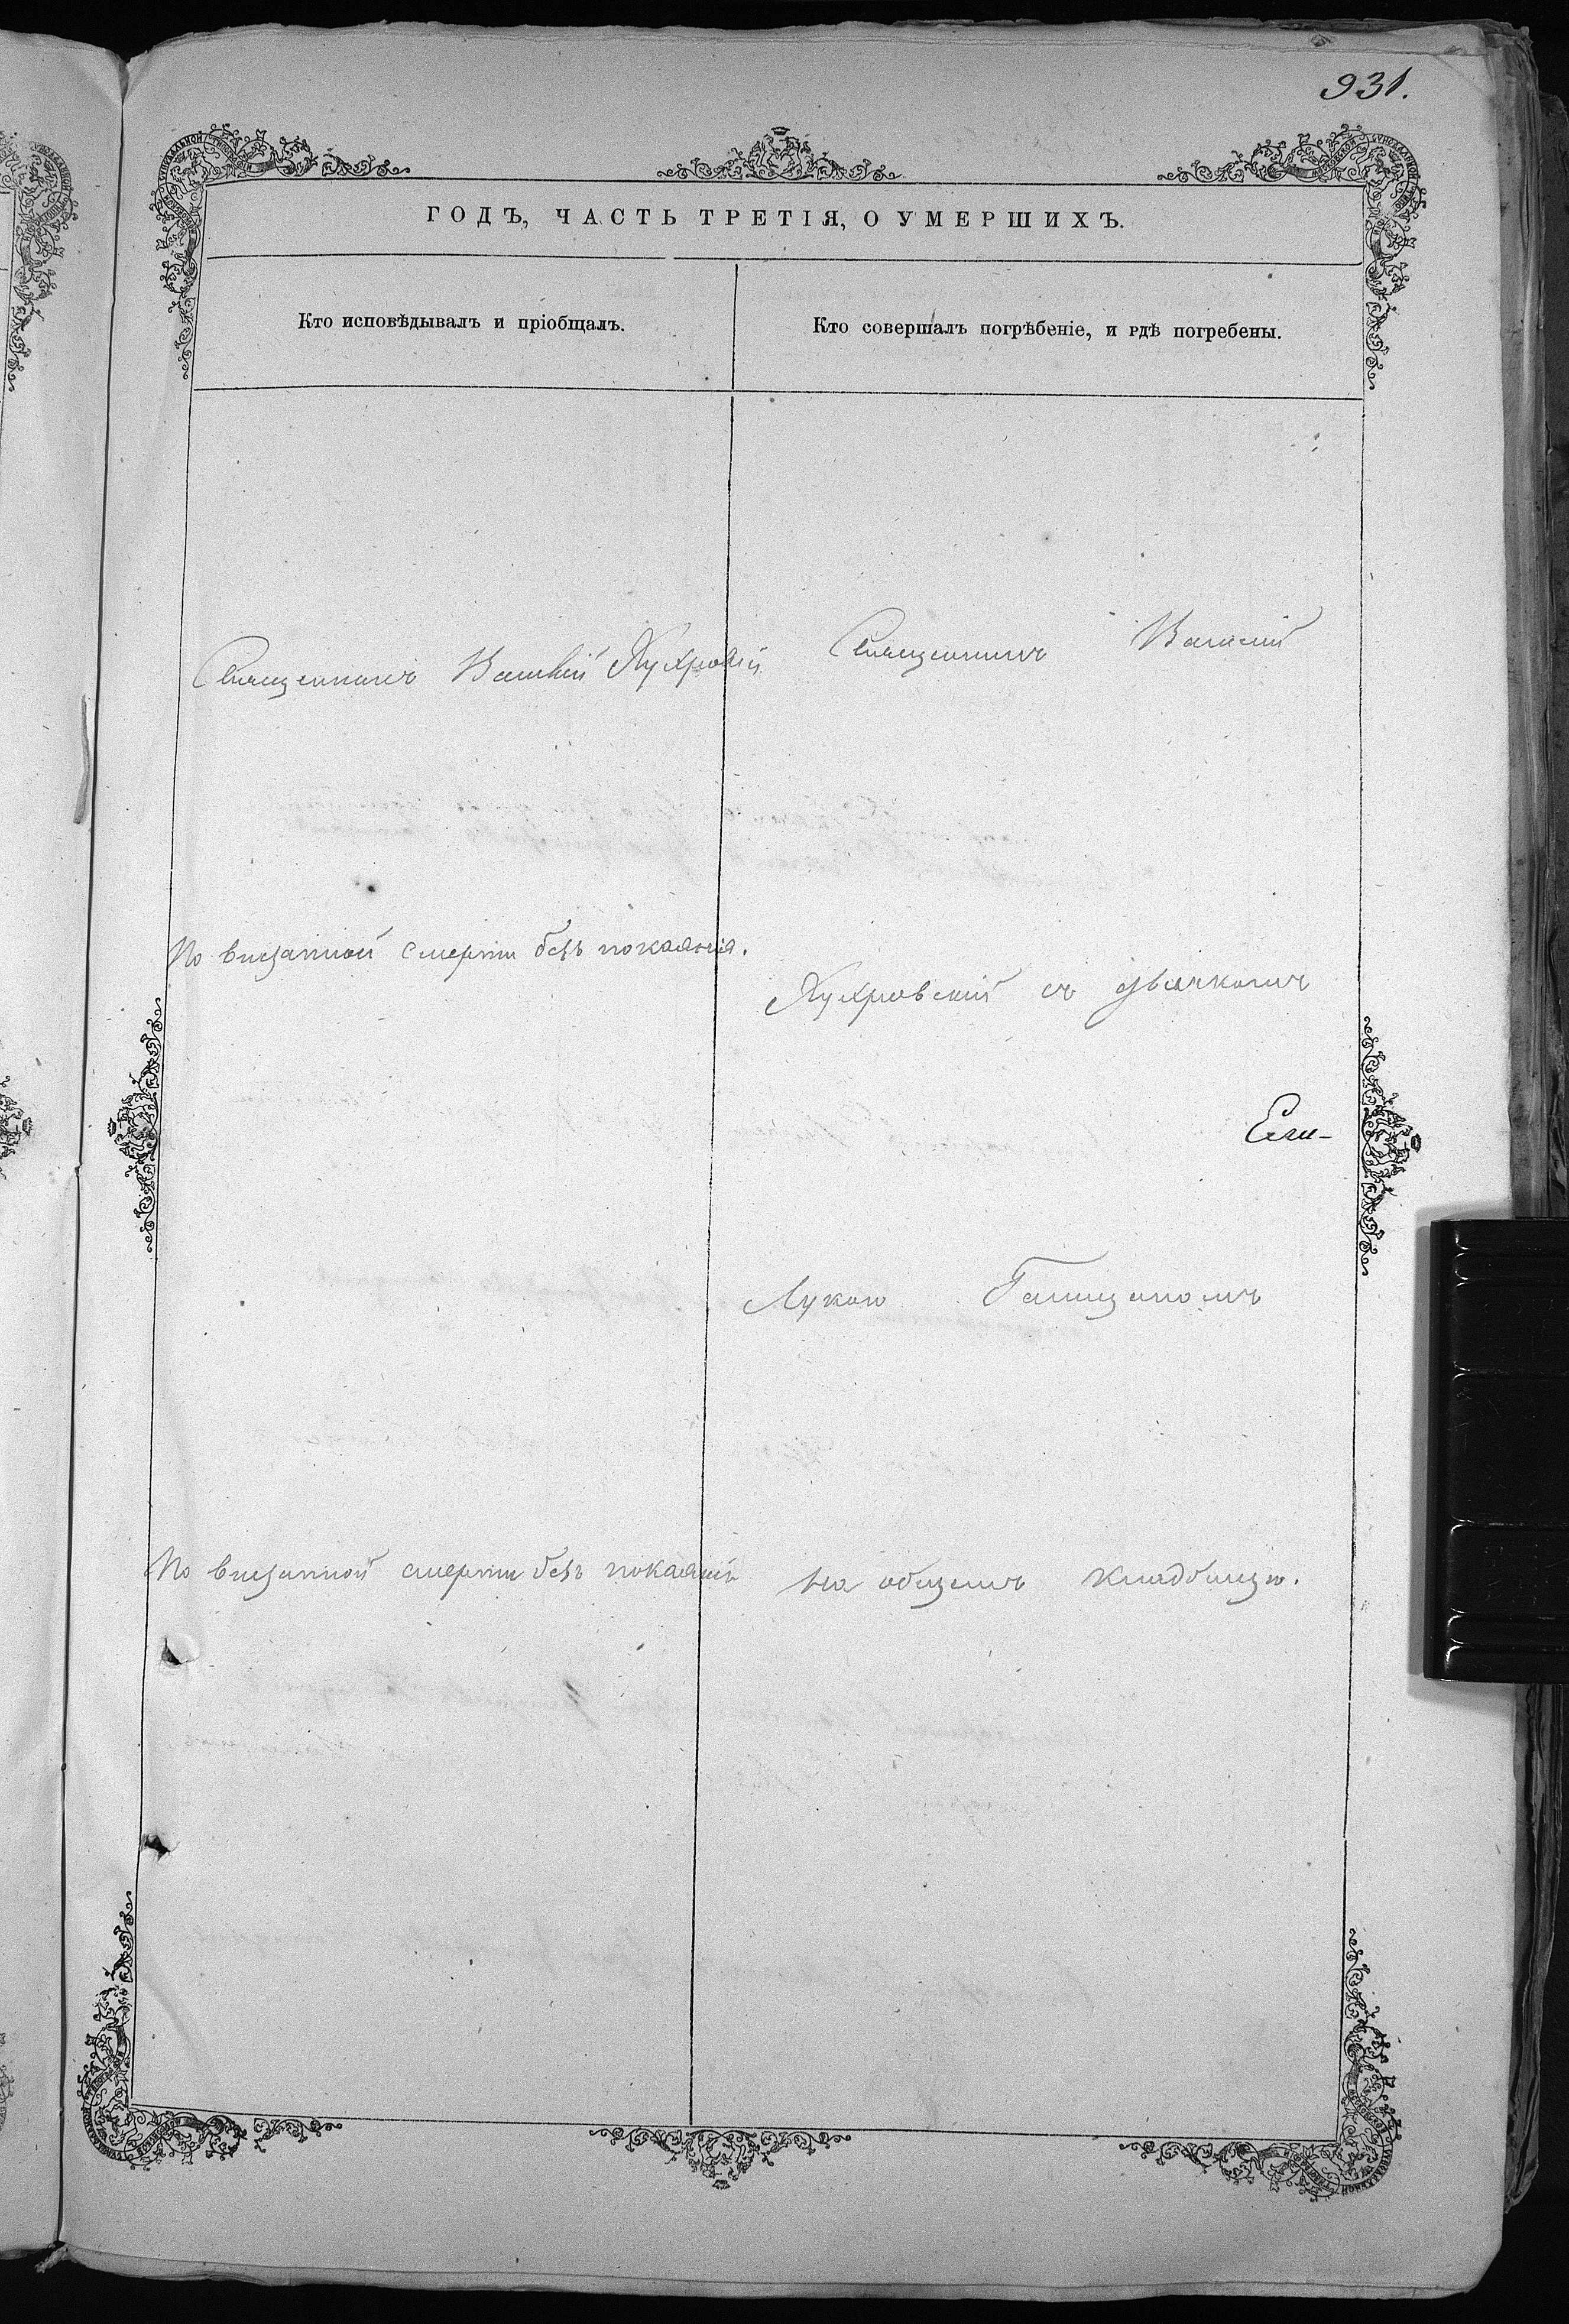 931.
ГОДЪ, ЧАСТЬ ТРЕТІЯ, О УМЕРШИХЪ.
Кто исповѣдывалъ и пріобщалъ.
Кто совершалъ погрѣбеніе, и гдѣ погребены.
Священникъ Василій
По внезапной смерти безъ покаянія.
По внезапной смерти безъ покаянія
Священникъ Василій
съ дьячкомъ
Лукою
на общемъ кладбищѣ.